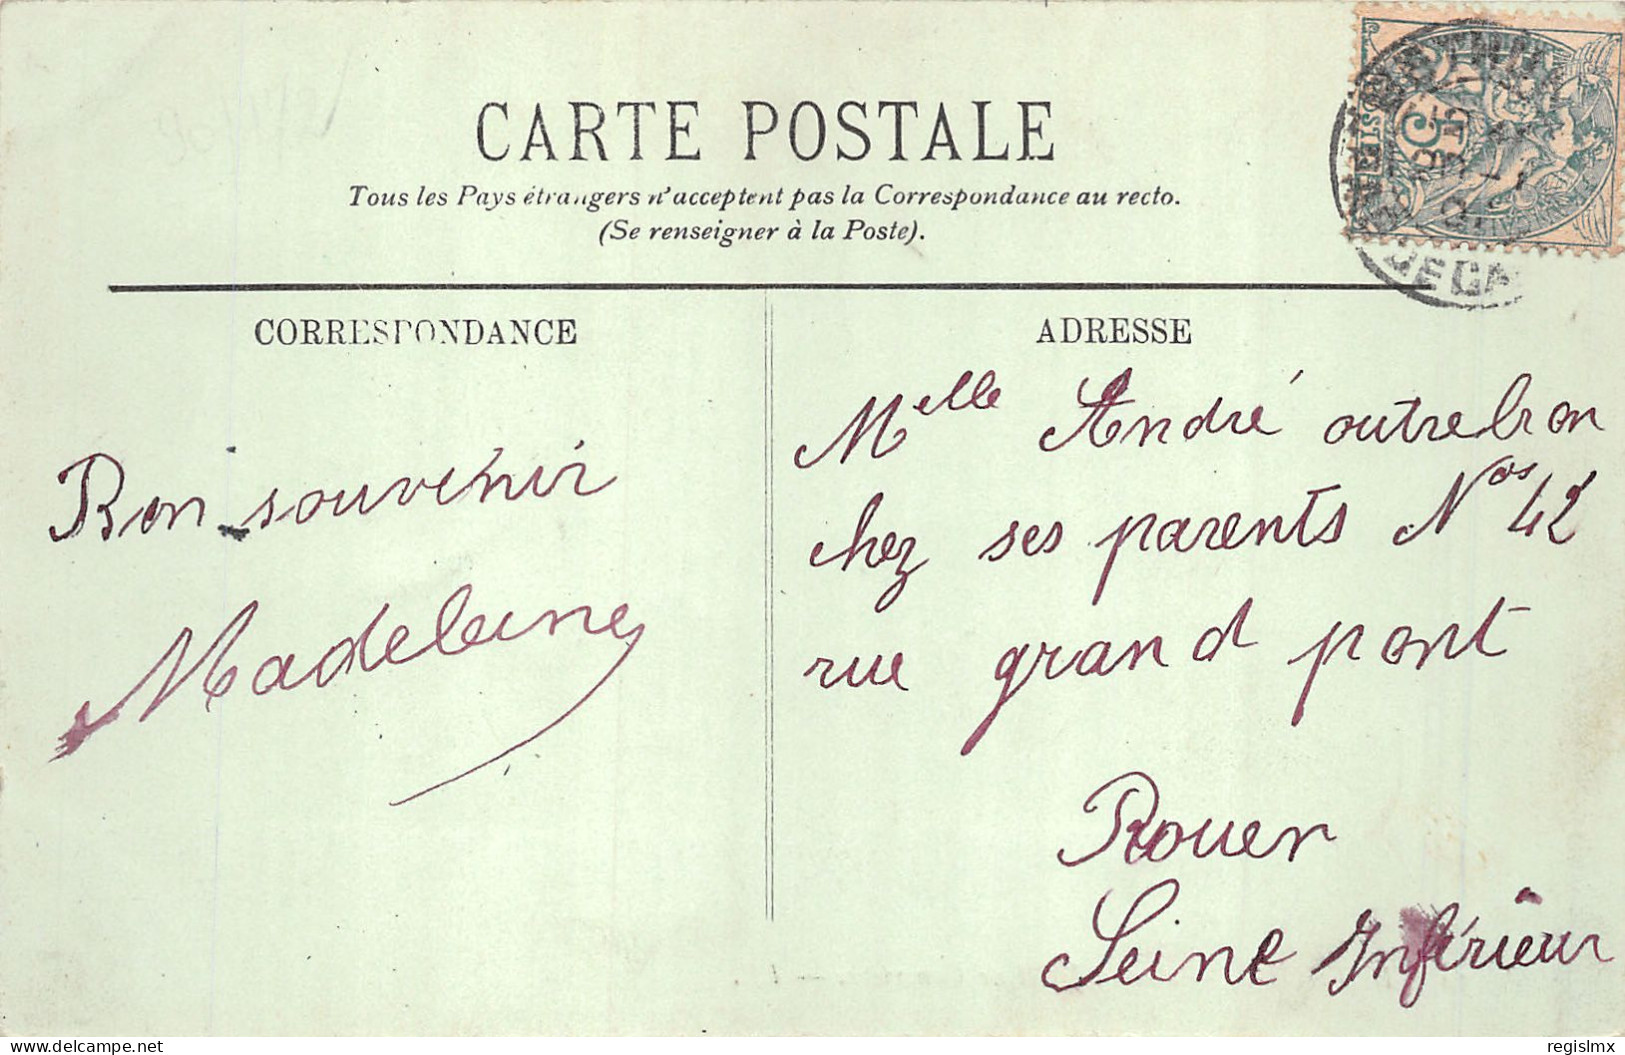 CARTE POSTALE
Tous les Pays étrangers n'acceptent pas la Correspondance au recto.
(Se renseigner à la Poste).
CORRESPONDANCE
ADRESSE
Bon souvenir
Madeleine
Melle André outrebon
chez ses parents Nos 42
rue grand pont
Rouen
Seine Inférieur
5
delcampe.net
regislmx